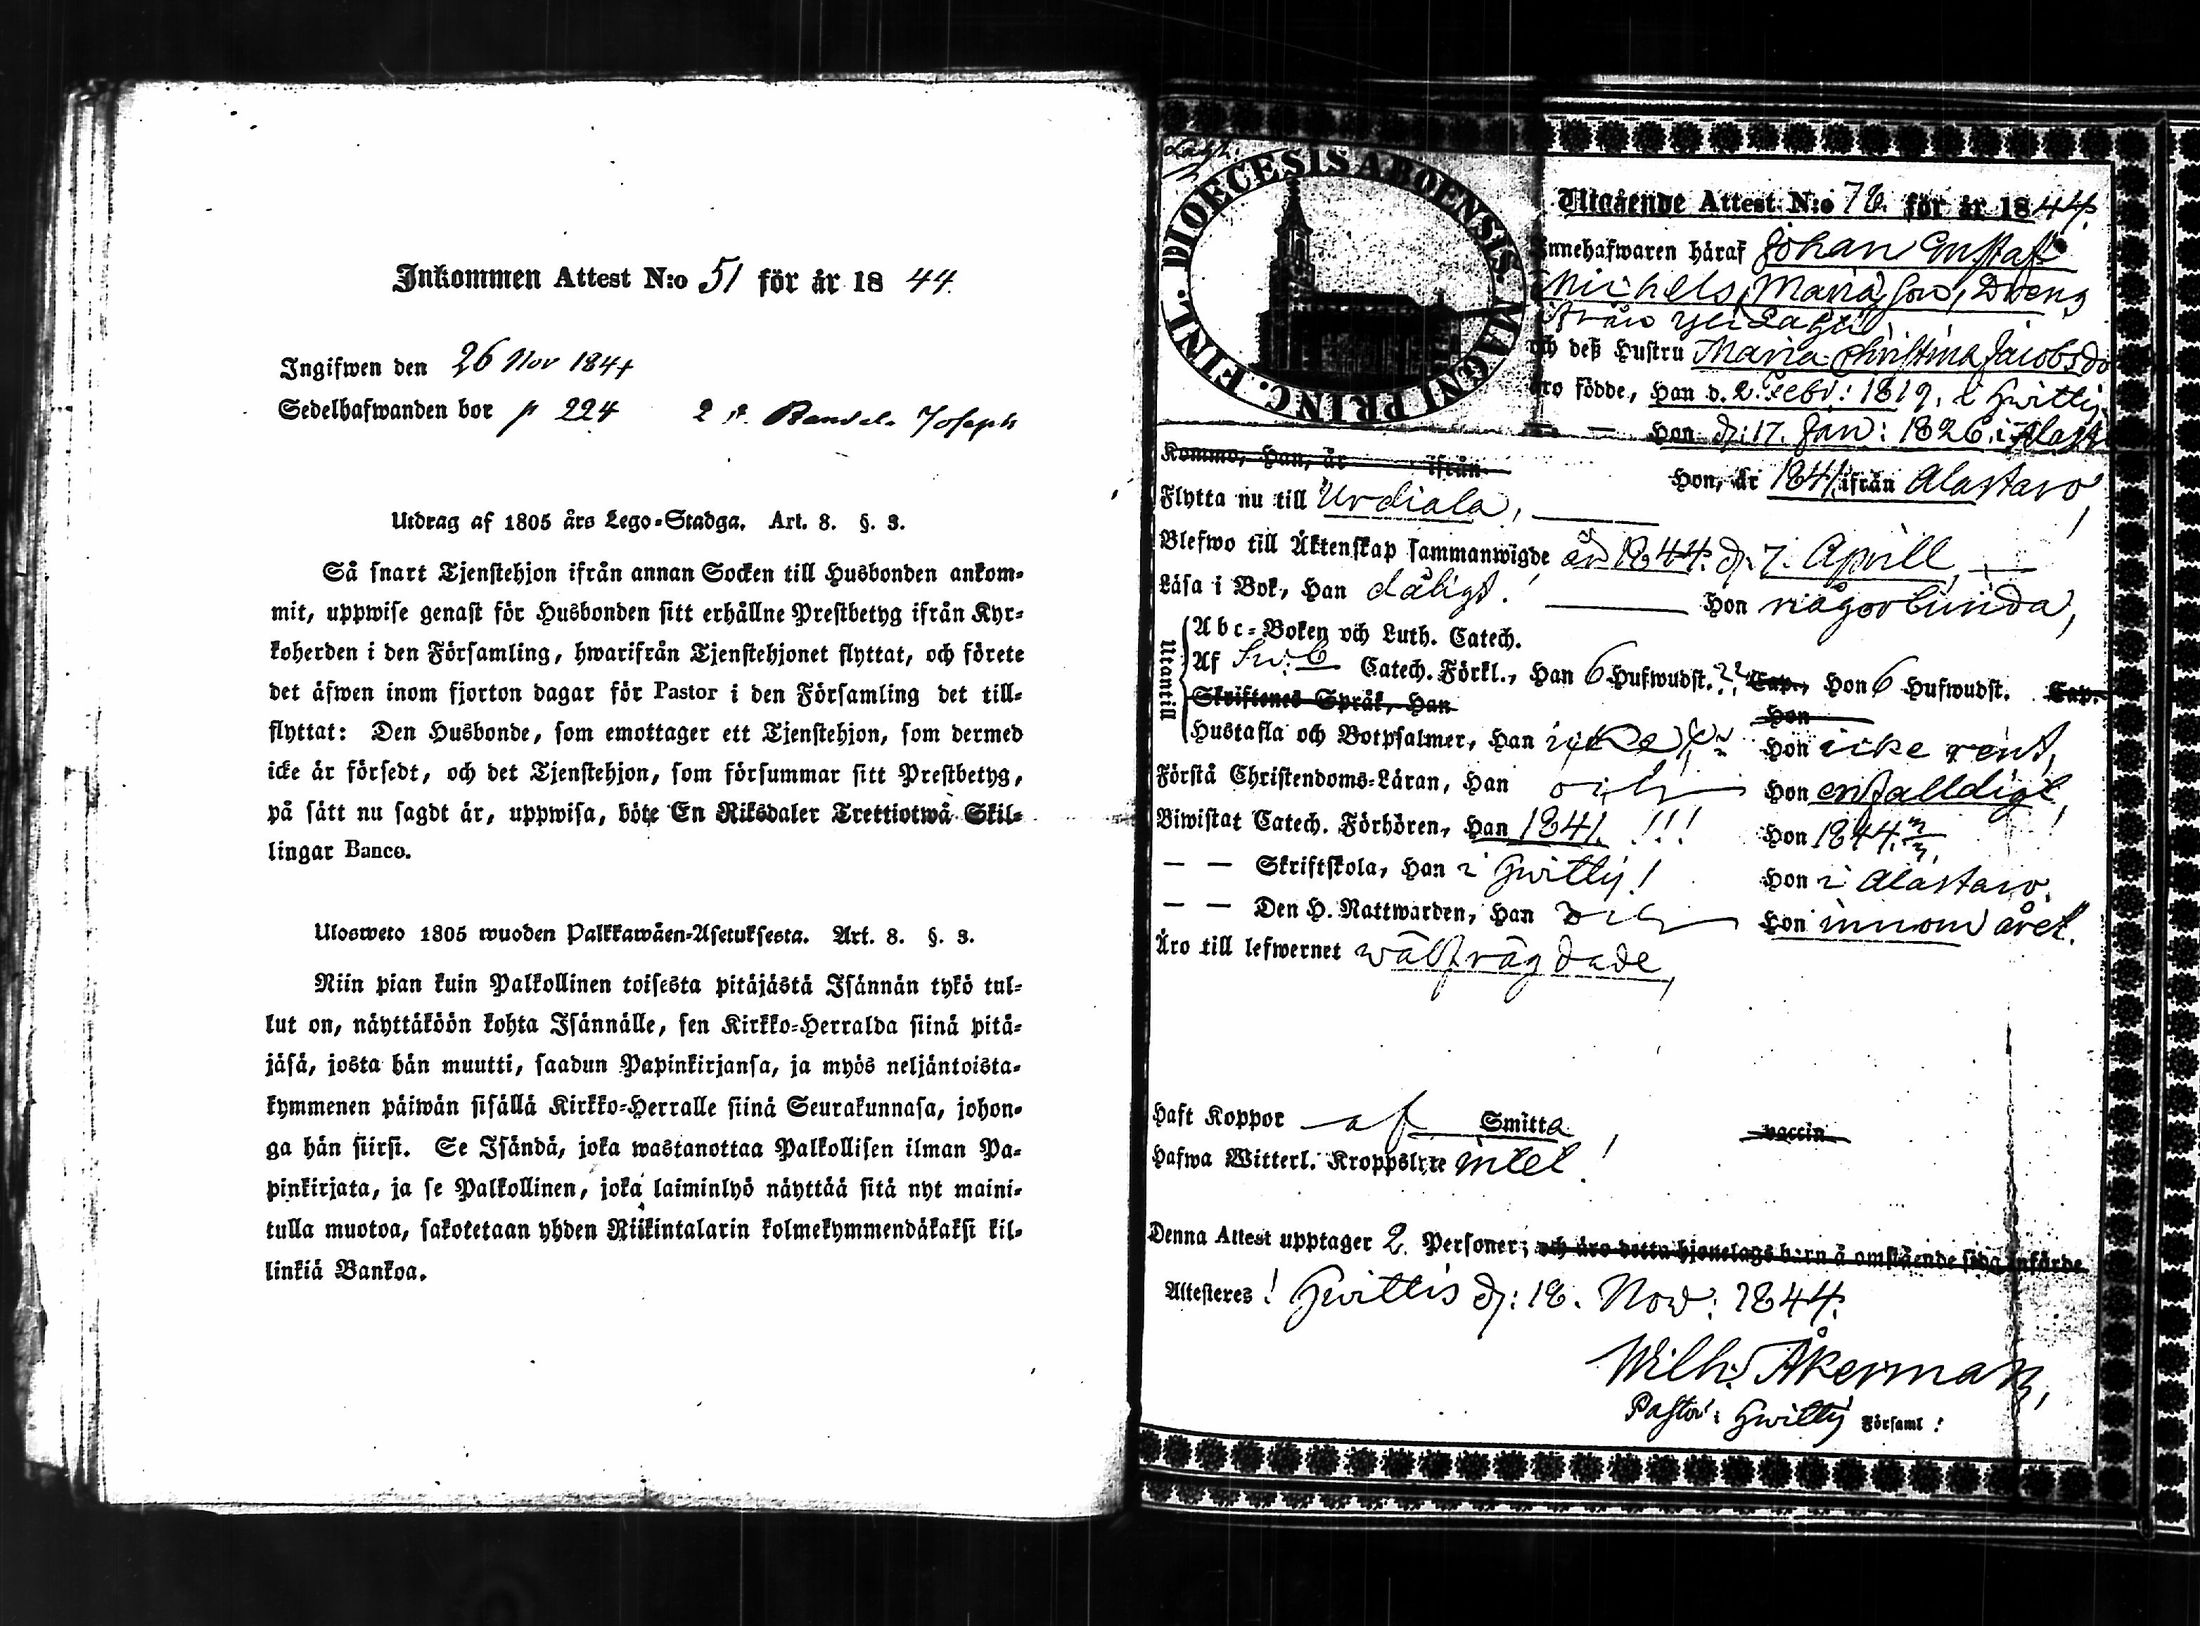 Inkommen Attest N:o 51 för år 18 44.
Ingifwen den 26 Nov 1844
Sedelhafwanden bor p 224 2 Joseph
Utdrag af 1805 års Lego-Stadga. Art. 8. §. 3.
Så snart Tjenstehjon ifrån annan Socken till Husbonden ankom-
mit, uppwise genast för Husbonden sitt erhållne Prestbetyg ifrån Kyr-
koherden i den Församling, hwarifrån Tjenstehjonet flyttat, och förete
det äfwen inom fjorton dagar för Pastor i den Församling det till-
flyttat: Den Husbonde, som emottager ett Tjenstehjon, som dermed
icke är försedt, och det Tjenstehjon, som försummar sitt Prestbetyg,
på sätt nu sagdt är, uppwisa, böte En Riksdaler Trettiotwå Skil-
lingar Banco.
Ulosweto 1805 wuoden Palkkawäen-Asetuksesta. Art. 8. §. 3.
Niin pian kuin Palkollinen toisesta pitäjästä Isännän tykö tul-
lut on, näyttäköön kohta Isännälle, sen Kirkko-Herralda siinä pitä-
jäsä, josta hän muutti, saadun Papinkirjansa, ja myös neljäntoista-
kymmenen päiwän sisällä Kirkko-Herralle siinä Seurakunnasa, johon-
ga hän siirsi. Se Isändä, joka wastanottaa Palkollisen ilman Pa-
pinkirjata, ja se Palkollinen, joka laiminlyö näyttää sitä nyt maini-
tulla muotoa, sakotetaan yhden Riikintalarin kolmekymmendäkaksi kil-
linkiä Bankoa.
DIOECESIS ABOENSIS MAGNI PRINC. FINL.
Utgående Attest N:o 78. för år 1844.
Innehafwaren häraf Johan Gustaf
Michels, Maria, son, Dreng
ifrån
och deß Hustru Maria Christina Jacobsdo
äro födde, Han d. 2. Febr: 1819, i Hwittis
— — Hon d: 17. Jan: 1826, i Alast
Kommo, Han, år ifrån Hon, år 1841 ifrån Alastaro,
Flytta nu till Urdiala,
Blefwo till Äktenskap sammanwigde år 1844. d. 7. Aprill,
Läsa i Bok, Han dåligt! Hon någorlunda,
Utantill
Abc-Boken och Luth. Catech.
Af Catech. Förkl., Han 6 Hufwudst. Cap., Hon 6 Hufwudst. Cap.
Skriftenes Språk, Han Hon
Hustafla och Botpsalmer, Han icke Hon icke rent,
Förstå Christendoms-Läran, Han och Hon enfalldigt,
Biwistat Catech. Förhören, Han 1841. !!! Hon 1844.
— — Skriftskola, Han i Hwittis! Hon i Alastaro.
— — Den H. Nattwarden, Han och Hon innom året.
Äro till lefwernet wälfrägdade,
Haft Koppor af Smitta! vaccin
Hafwa Witterl. Kroppslyte intet!
Denna Attest upptager 2. Personer; och äro detta hjonelags barn å omstående sida införde
Attesteres! Hwittis d: 18. Nov: 1844.
Wilh: Åkerman,
Pastor i Hwittis Församl: